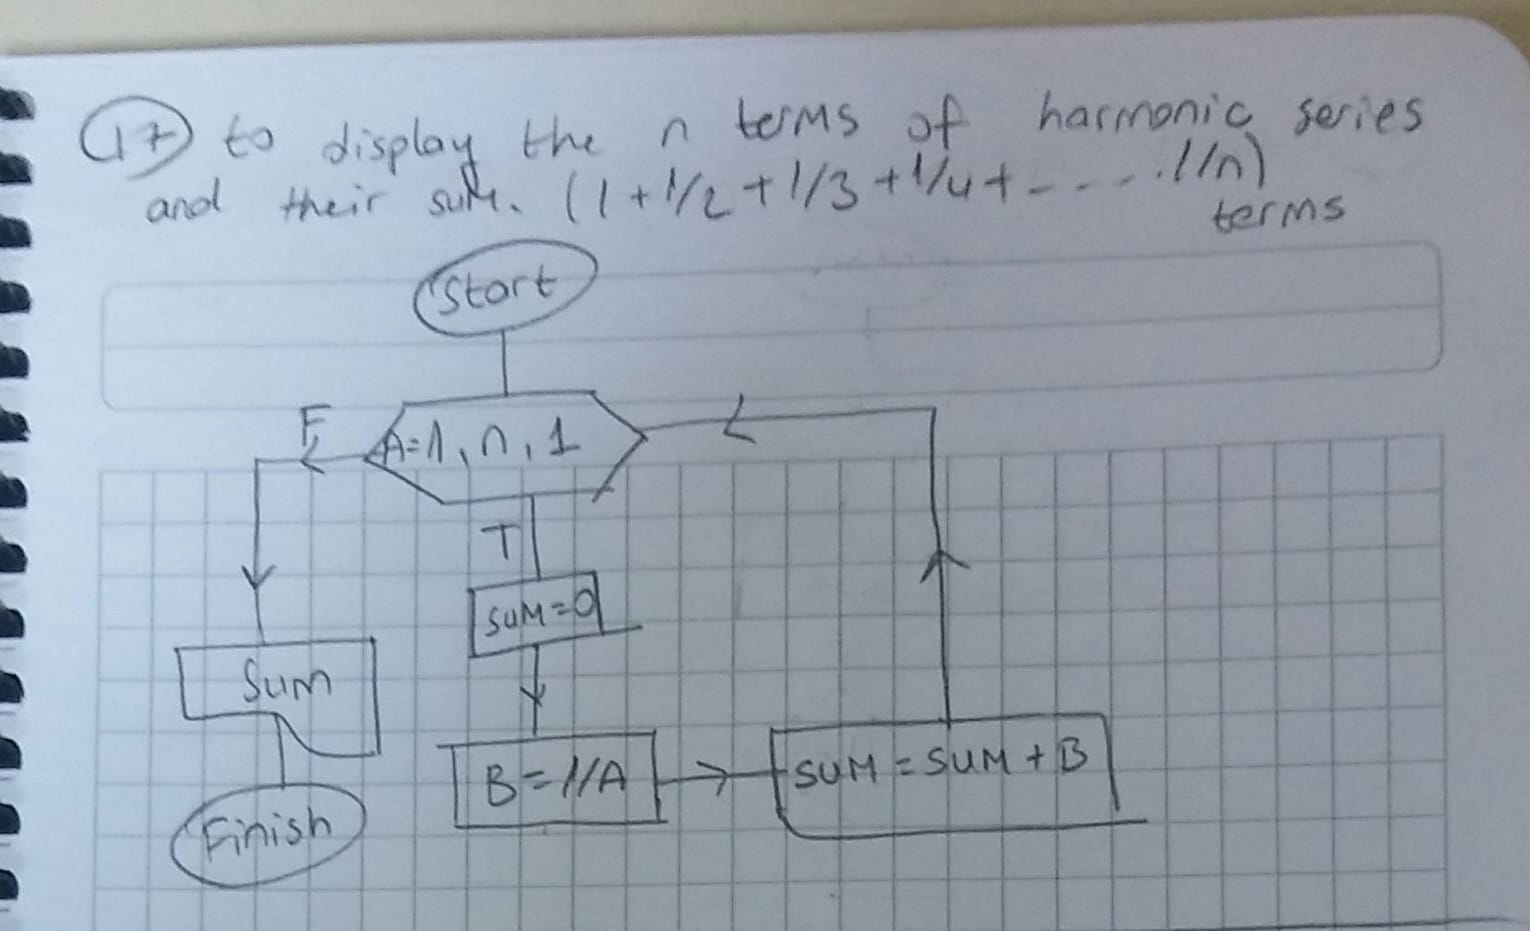 17 to display the n terms of harmonic series
and their sum. (1+1/2+1/3+1/4+-----1/n)
terms
Start
F
A=1, n, 1
T
SUM=0
Sum
B=1/A
SUM=SUM+B
Finish